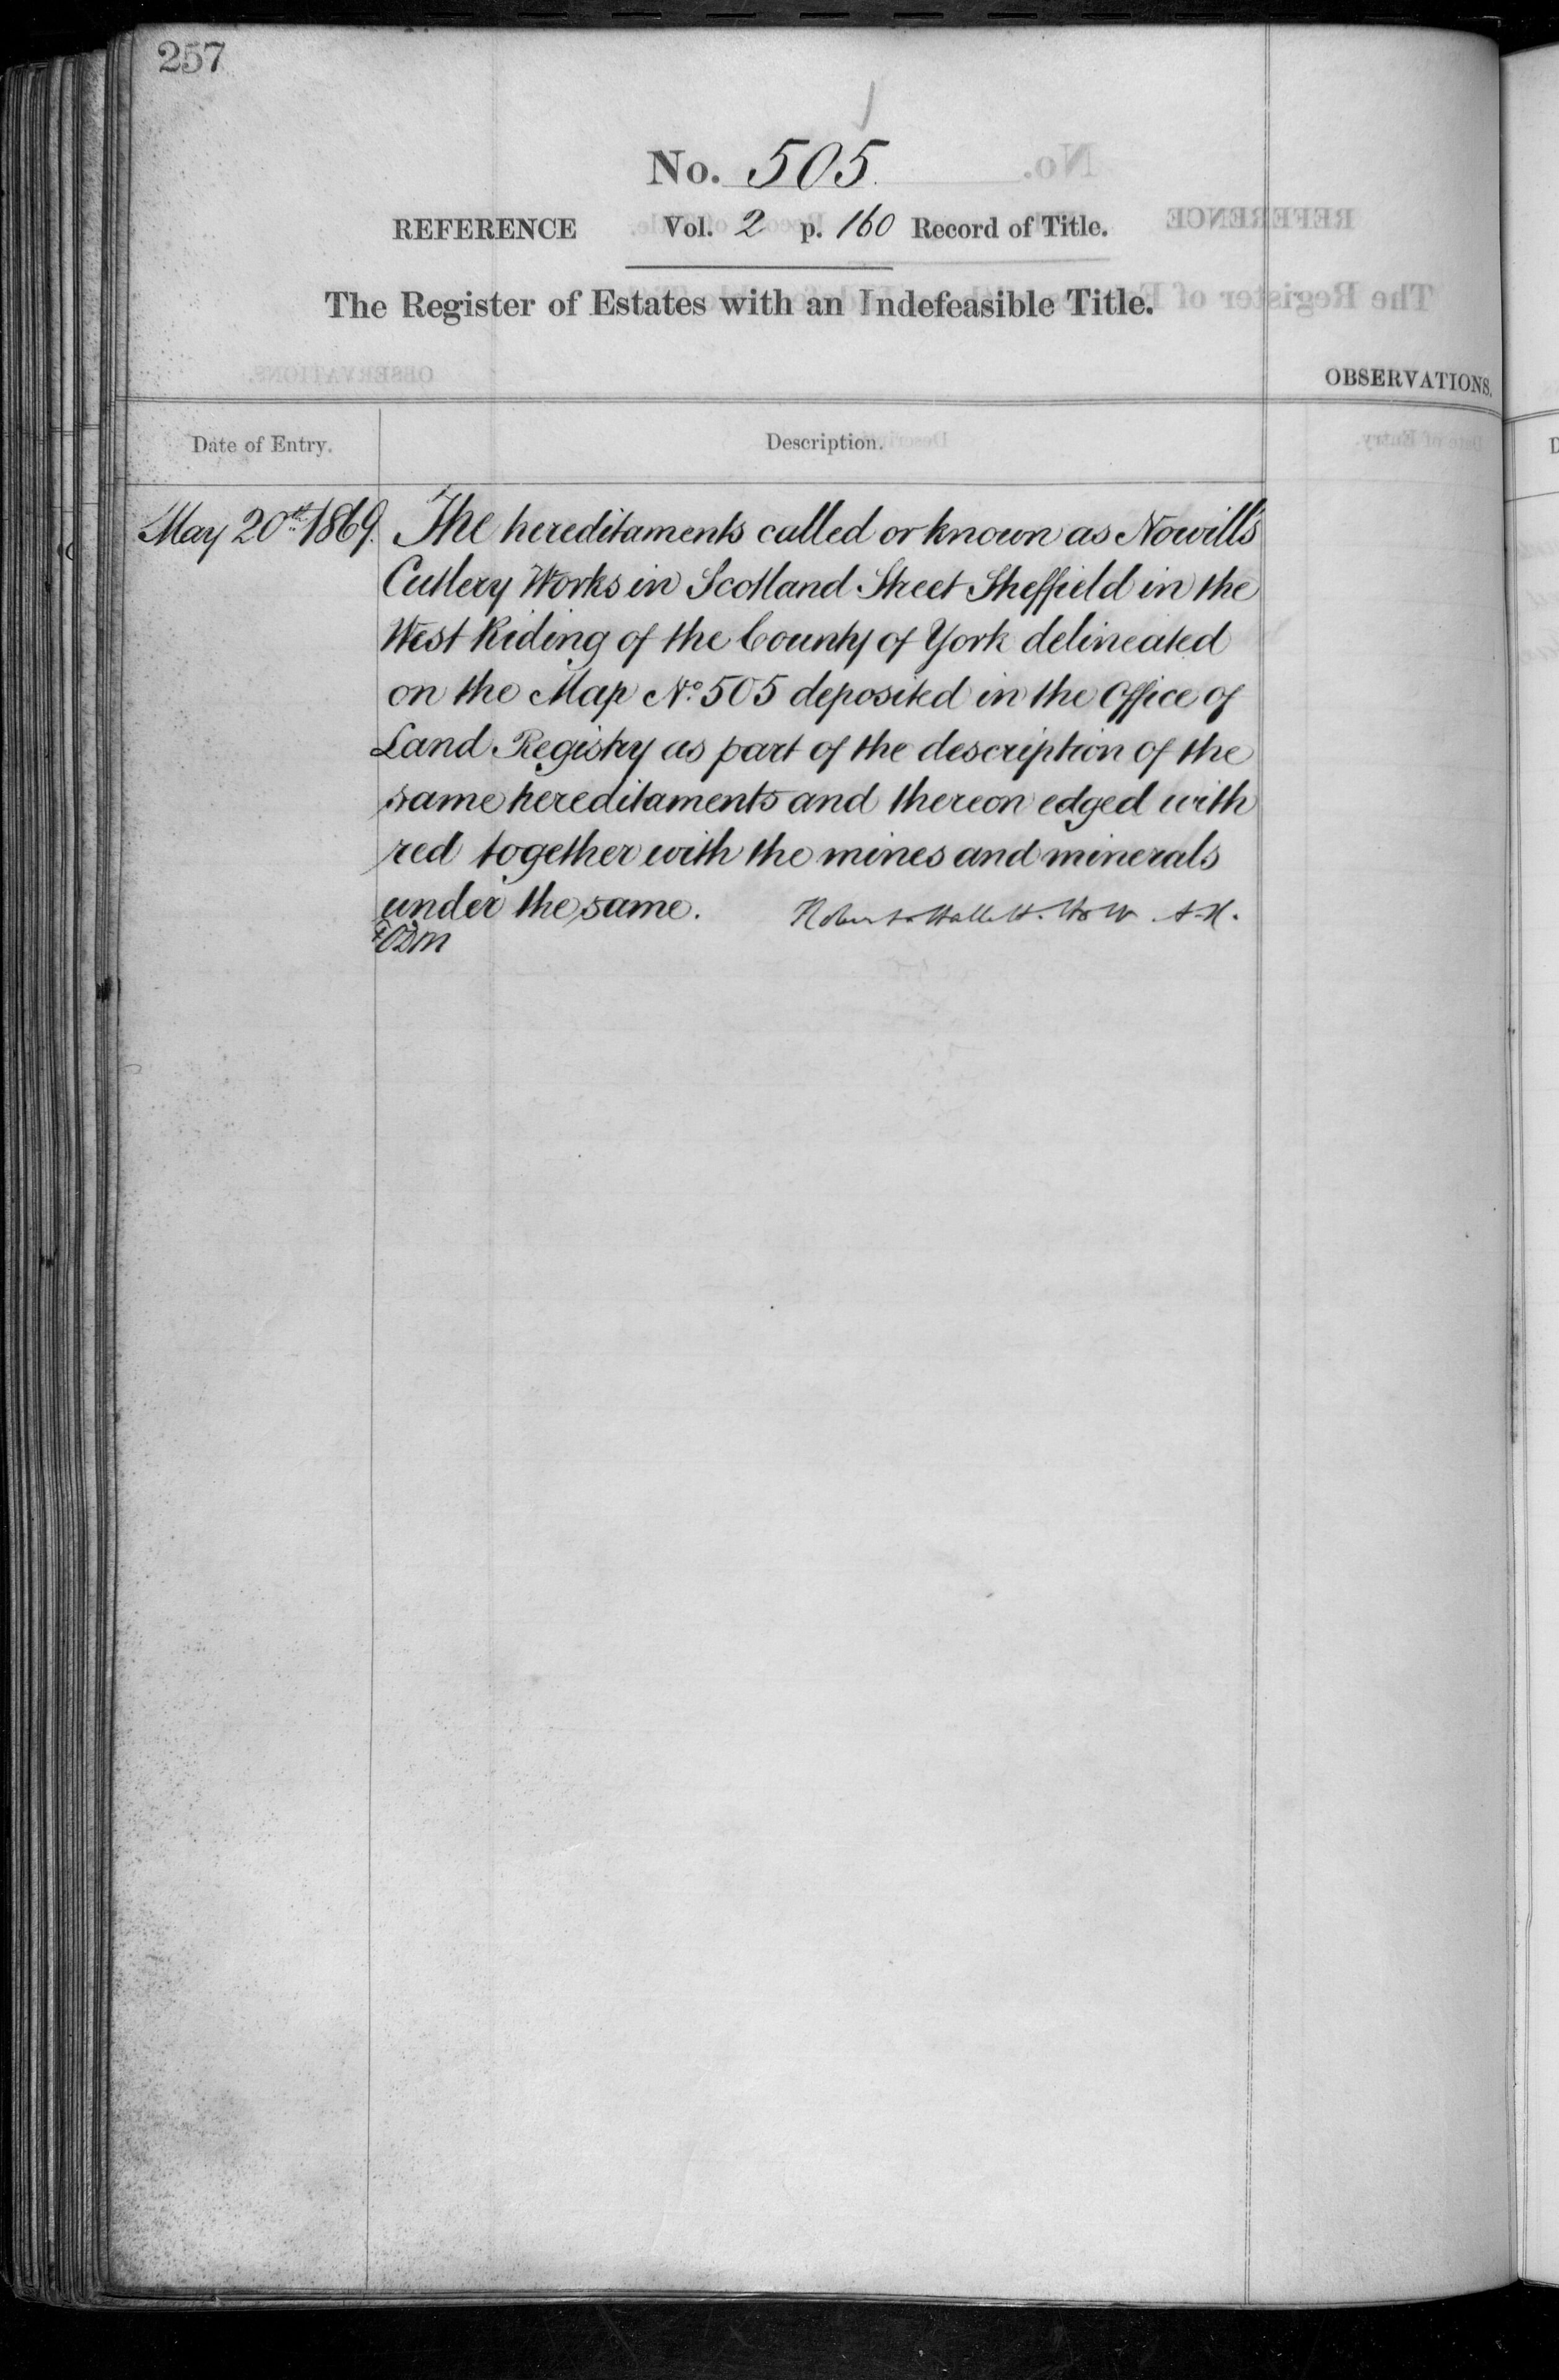 257
No. 505.
REFERENCE Vol. 2 p. 160 Record of Title.
The Register of Estates with an Indefeasible Title.
OBSERVATIONS.
Date of Entry.
Description.
May 20th 1869. The hereditaments called or known as Nowill's
Cutlery Works in Scotland Street Sheffield in the
West Riding of the County of York delineated
on the Map No. 505 deposited in the Office of
Land Registry as part of the description of the
same hereditaments and thereon edged with
red together with the mines and minerals
under the same.